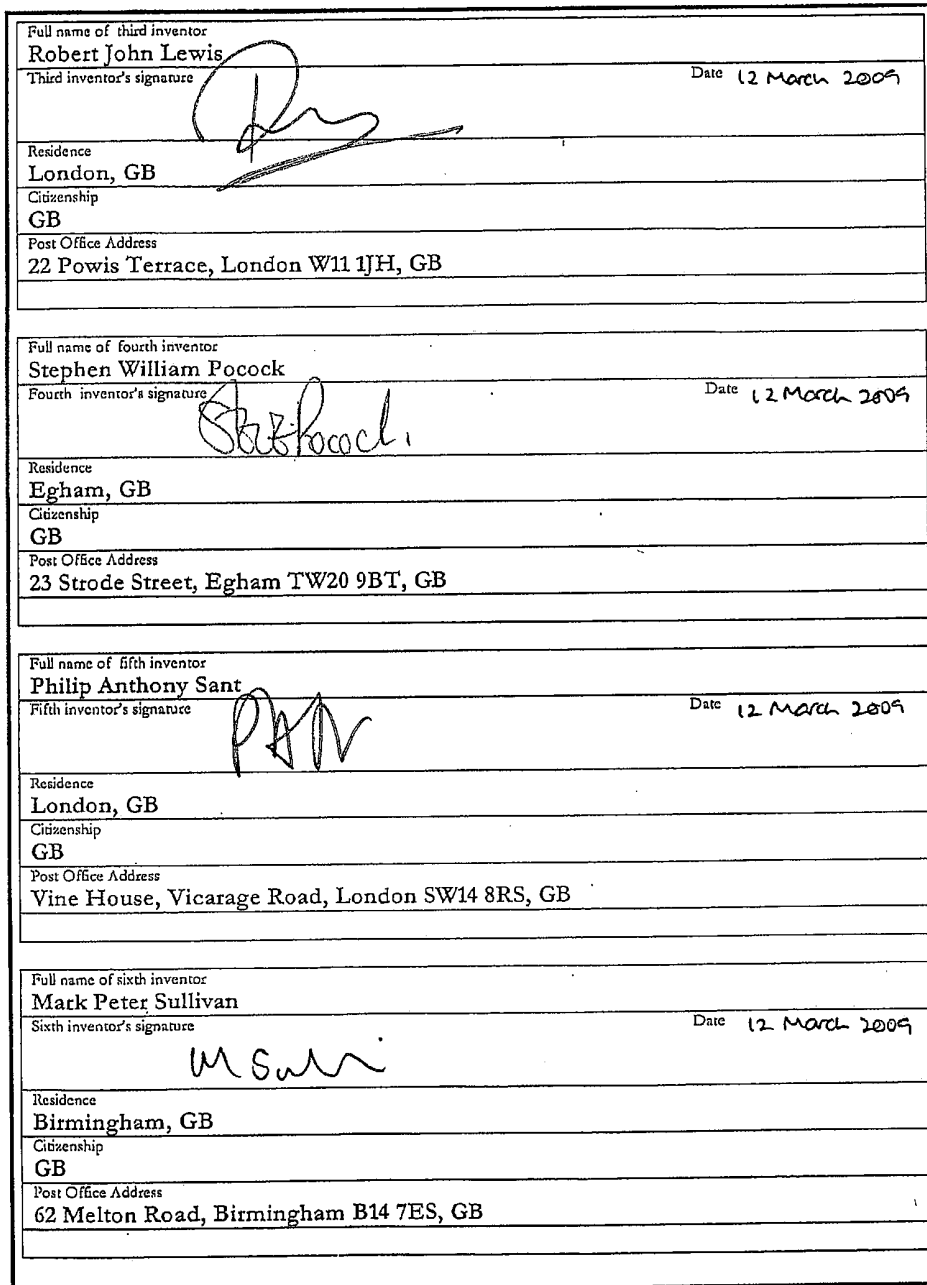 Full name of third inventor
Robert John Lewis
Third inventor's signature Date 12 March 2009
Residence
London, GB
Citizenship
GB
Post Office Address
22 Powis Terrace, London W11 1JH, GB
Full name of fourth inventor
Stephen William Pocock
Fourth inventor's signature Date 12 March 2009
Pocock
Residence
Egham, GB
Citizenship
GB
Post Office Address
23 Strode Street, Egham TW20 9BT, GB
Full name of fifth inventor
Philip Anthony Sant
Fifth inventor's signature Date 12 March 2009
Residence
London, GB
Citizenship
GB
Post Office Address
Vine House, Vicarage Road, London SW14 8RS, GB
Full name of sixth inventor
Mark Peter Sullivan
Sixth inventor's signature Date 12 March 2009
Residence
Birmingham, GB
Citizenship
GB
Post Office Address
62 Melton Road, Birmingham B14 7ES, GB